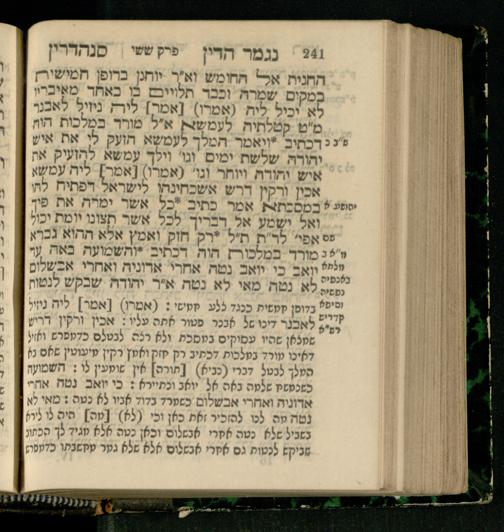 241 נגמר הדין פרק ששי סנהדרין
החנית אל החומש וא"ר יוחנן בדופן חמישית
במקום שמרה וכבד תלויים בו באחד מאיבריו
לא יכיל ליה (אמרו) [אמר] ליה ניזיל לאבנר
מ"ט קטלתיה לעמשא א"ל מורד במלכות הוה
ש"ב כ דכתיב *ויאמר המלך לעמשא הזעק לי את איש
יהודה שלשת ימים וגו' וילך עמשא להזעיק את
איש יהודה ויוחר וגו' (אמרו) [אמר] ליה עמשא
אכין ורקין דרש אשכחינהו לישראל דפתיח להו
יהושע א במסכתא אמר כתיב *כל אשר ימרה את פיך
ואל ישמע אל דבריך לכל אשר תצונו יומת יכול
שם אפי' לד"ת ת"ל *רק חזק ואמץ אלא ההוא גברא
מ"א ב מורד במלכות הוה דכתיב *והשמועה באה עד
יואב כי יואב נטה אחרי אדוניה ואחרי אבשלום
לא נטה מאי לא נטה א"ר יהודה שבקש לנטות
בדופן חמשית כנגד צלע חמישי: (אמרו) [אמר] ליה ניזיל
לאבנר דינו של אבנר פטור אתה עליו: אכין ורקין דריש
שמלאן שהיו עסוקים במסכת ולא רצה לבטלם כדמפרש ואזיל
דאינו מורד במלכות דכתיב רק חזק ואמץ רקין מיעוטין שאם בא
המלך לבטל דברי [תורה] אין שומעין לו: השמועה
כשנעשה שלמה באה אל יואב ונתיירא: כי יואב נטה אחרי
אדוניה ואחרי אבשלום כשמרד בדוד אביו לא נטה: מאי לא
נטה מה לנו להזכיר זאת כאן וכי (לא) [מה] היה לו לירא
בשביל שלא נטה אחרי אבשלום וכאן נטה אלא מגיד לך הכתוב
שביקש לנטות גם אחרי אבשלום אלא שלא גמר מחשבתו כדמפרש